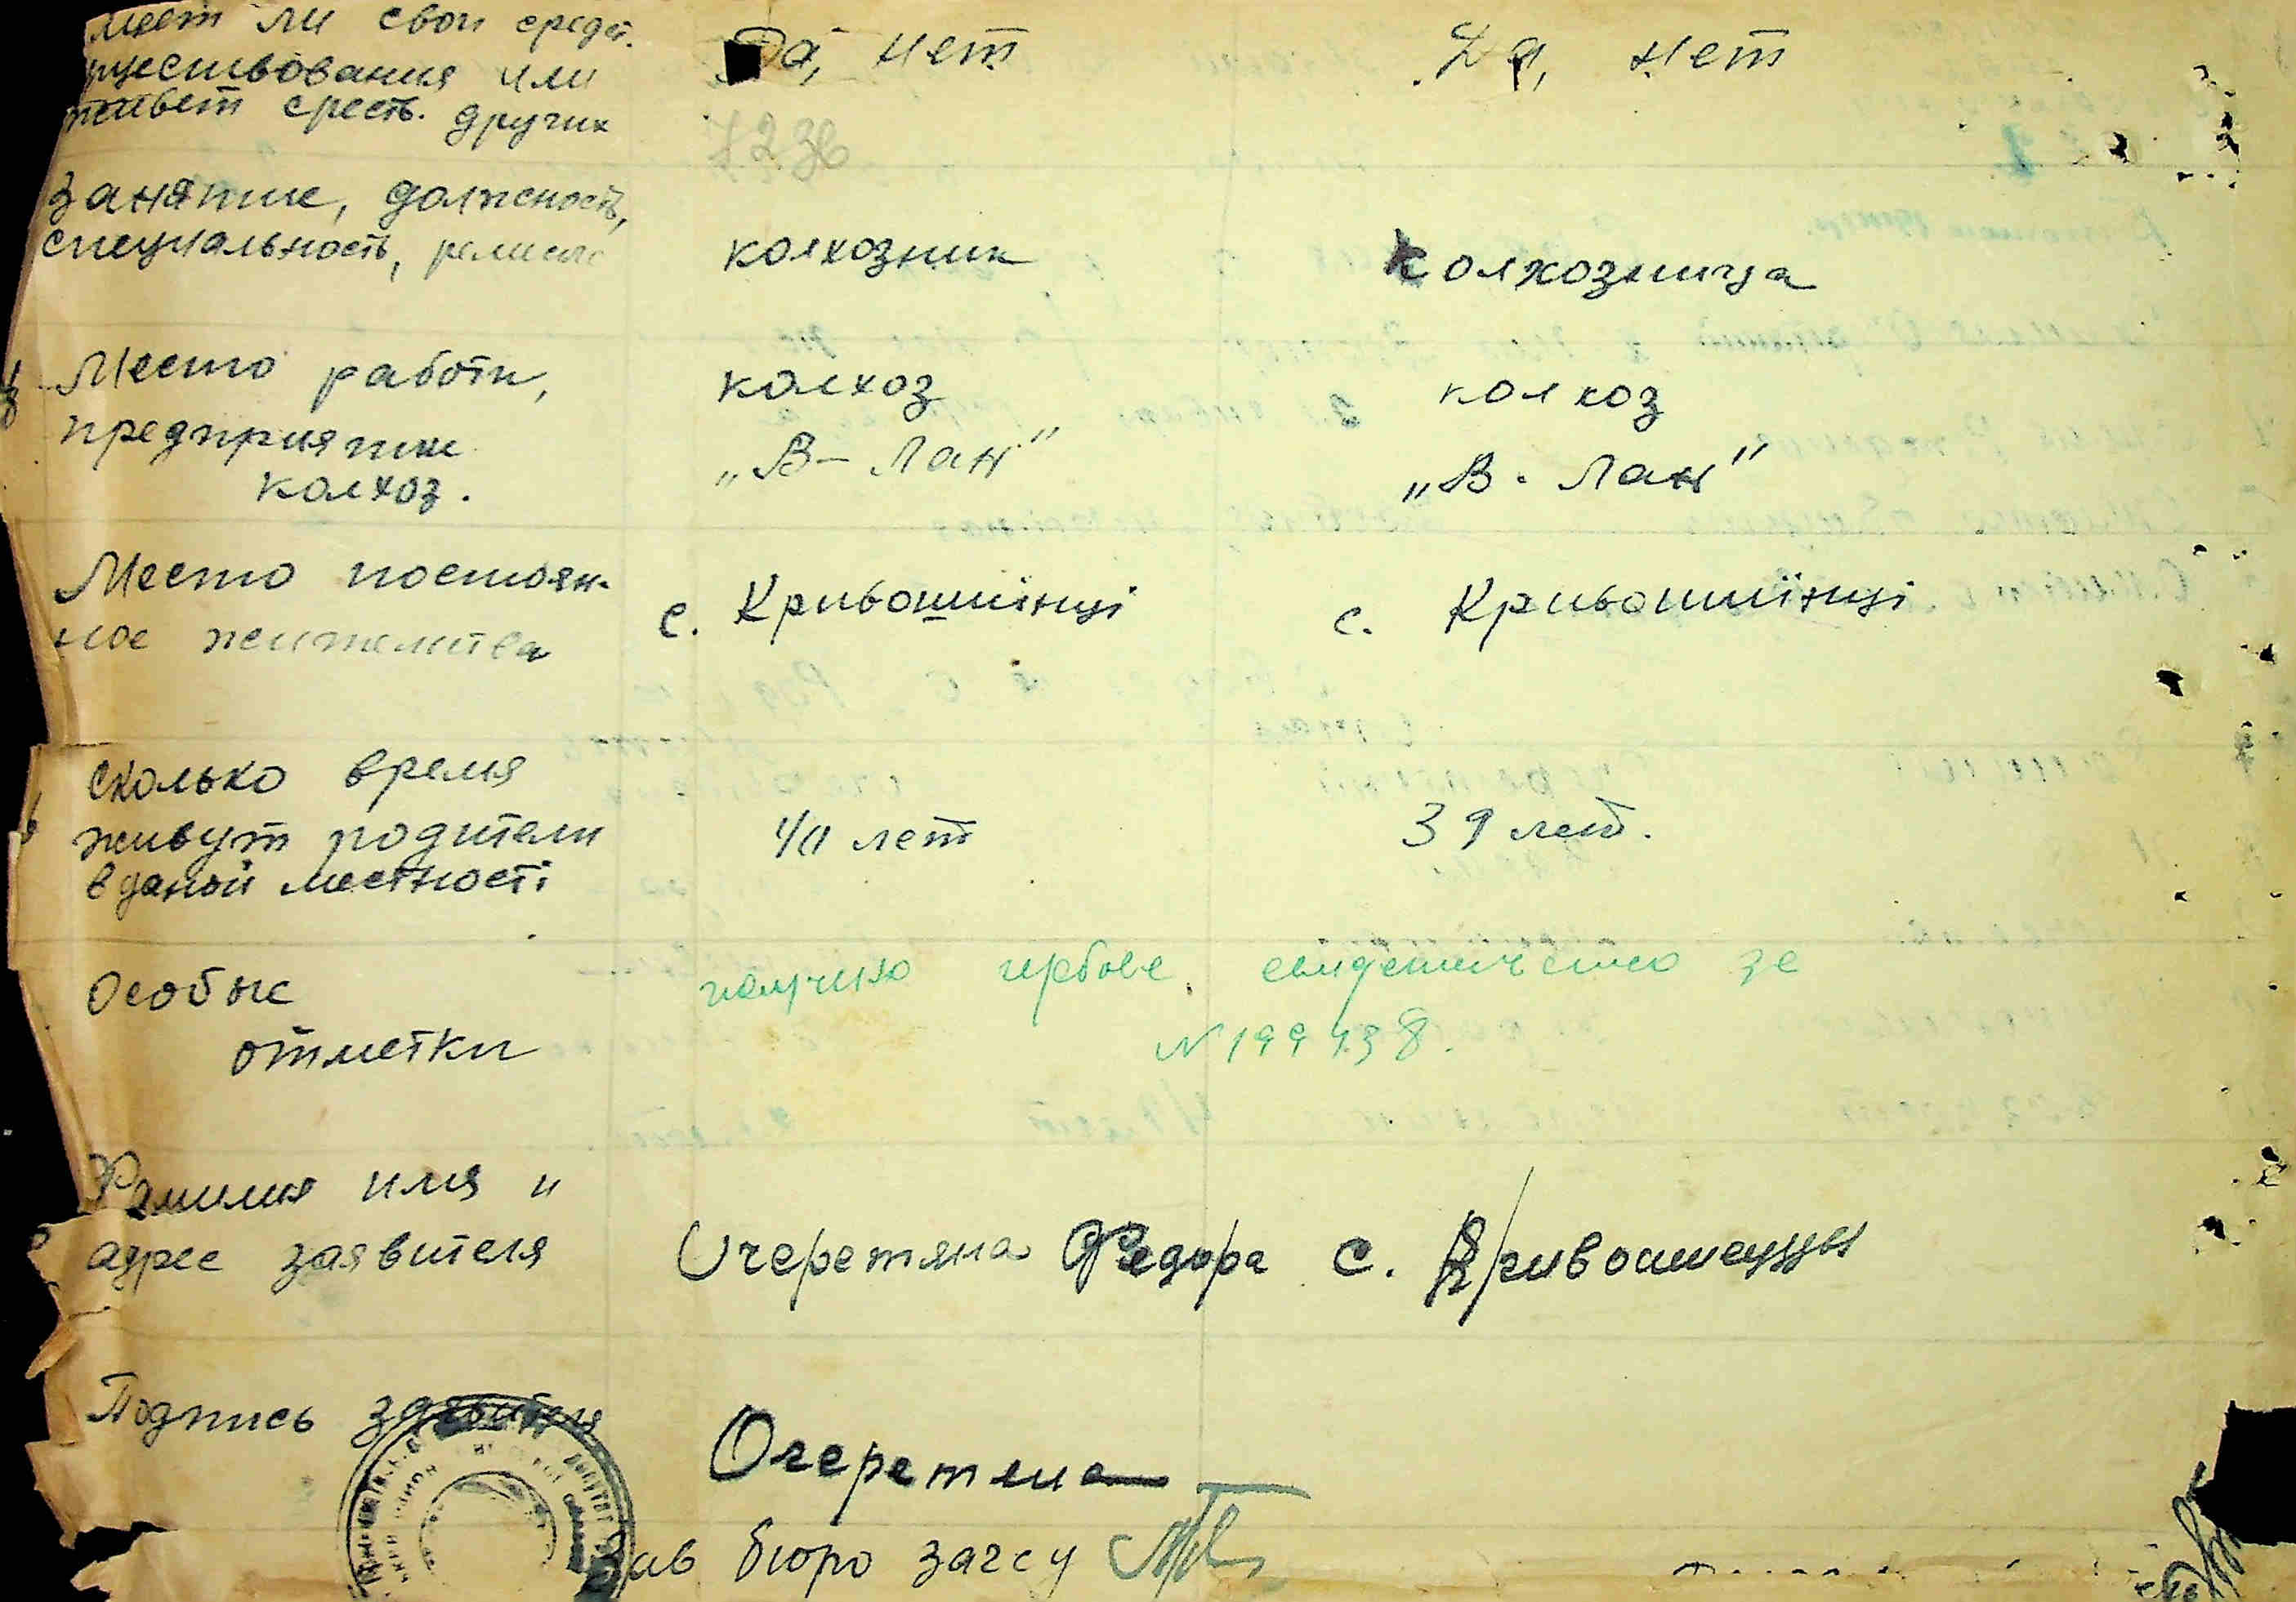 имеет ли свои средст.
существования или
живет средств. других
Да, нет
Да, нет
Занятие, должность,
специальность, ремесло
колхозник
колхозница
Место работи,
предприятие
колхоз.
колхоз
„В– Лан"
колхоз
„В. Лан"
Место постоян-
ное жительства
с. Кривошиїнці
с. Кривошиїнці
Сколько время
живут родители
в даной местності
40 лет
39 лет.
Особые
отметки
получено гербове свидетельство за
N 199438.
Фамилия имя и
адрес заявителя
Очеретяна Федора с. Кривошеинцы
Подпись заявителя
Очеретяна
Зав бюро загсу